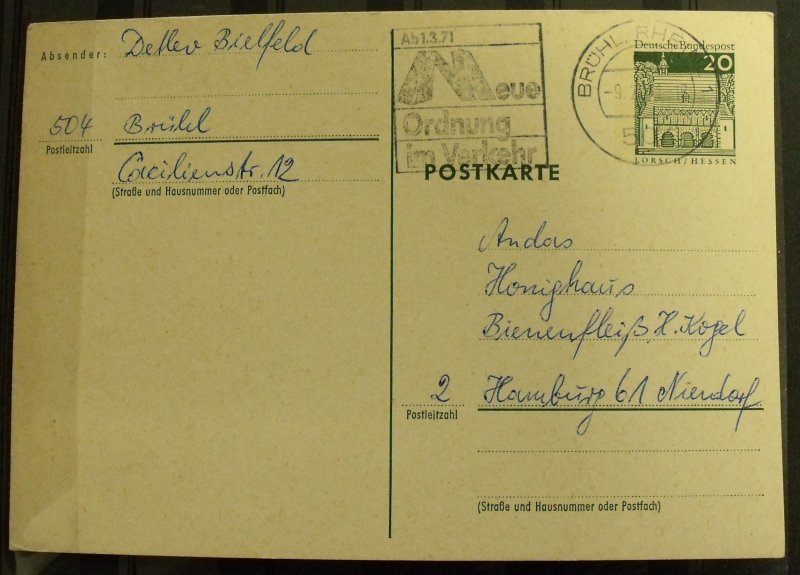 Absender: Detlev Bielfeld
504 Brühl
Postleitzahl
Caecilienstr. 12
(Straße und Hausnummer oder Postfach)
Ab 1.3.71
Neue
Ordnung
im Verkehr
BRÜHL, RHE
-9.
5
Deutsche Bundespost
20
LORSCH/HESSEN
POSTKARTE
Andas
Honighaus
Bienenfleiß H. Kogel
2 Hamburg 61 Niendorf
Postleitzahl
(Straße und Hausnummer oder Postfach)